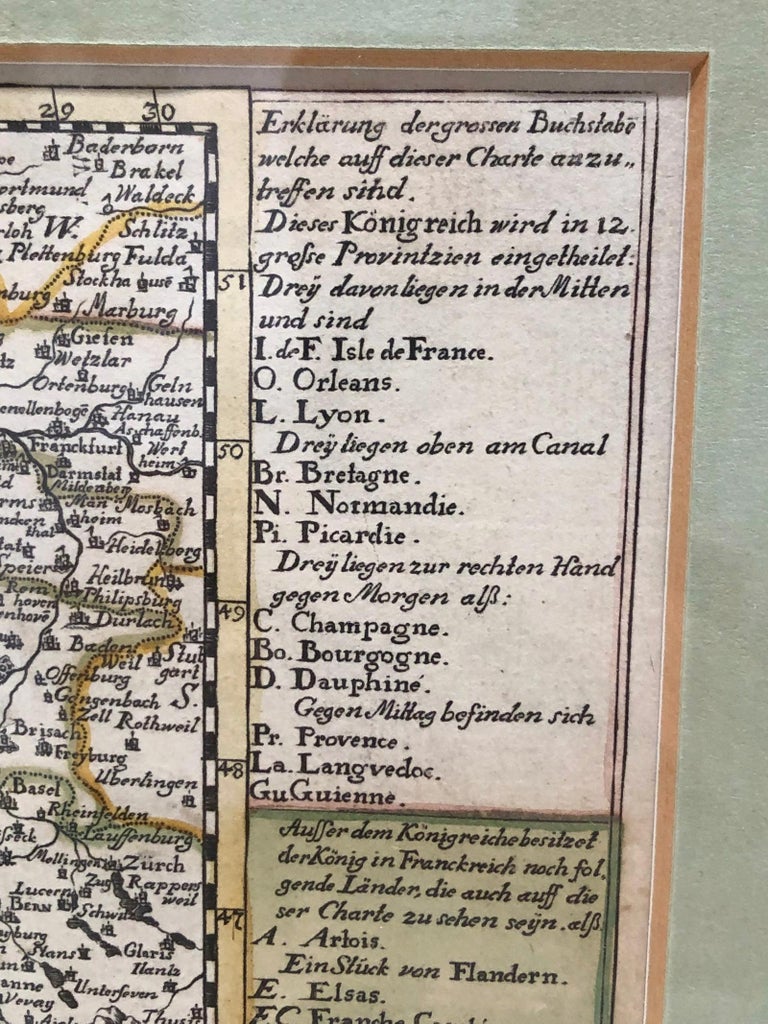 29 30
Baderborn
Brakel
Waldeck
W. Schlitz
Plettenburg Fulda
51
Marburg
Giesen
Wetzlar
Ortenburg Geln
hausen
Hanau
Aschaffenb.
Franckfurt Wert
heim
50
Darmstat
Mildenberg
Man Mosbach
heim
Heidelberg
Heilbrun
Philipsburg
49
Durlach
Baden Stut
Weil gart
Offenburg
Gengenbach S.
Zell Rothweil
Brisach
Freyburg
48
Uberlingen
Basel
Rheinfelden
Lauffenburg
Mellingen Zürch
Zug Rappers
weil
Lucern
BERN Schwitz
47
Glaris
Ilantz
Unterseven
Vevay
Erklärung der grossen Buchstabē
welche auff dieser Charte anzu„
treffen sind.
Dieses Königreich wird in 12
große Provintzien eingetheilet:
Dreÿ davon liegen in der Mitten
und sind
I. de F. Isle de France.
O. Orleans.
L. Lyon.
Dreÿ liegen oben am Canal
Br. Bretagne.
N. Normandie.
Pi. Picardie.
Dreÿ liegen zur rechten Hand
gegen Morgen alß:
C. Champagne.
Bo. Bourgogne.
D. Dauphiné.
Gegen Mittag befinden sich
Pr. Provence.
La. Langvedoc.
Gu. Guienne.
Ausser dem Königreiche besitzet
der König in Franckreich noch fol„
gende Länder, die auch auff die
ser Charte zu sehen seÿn. alß.
A. Artois.
Ein Stück von Flandern.
E. Elsas.
FC Franche Comté